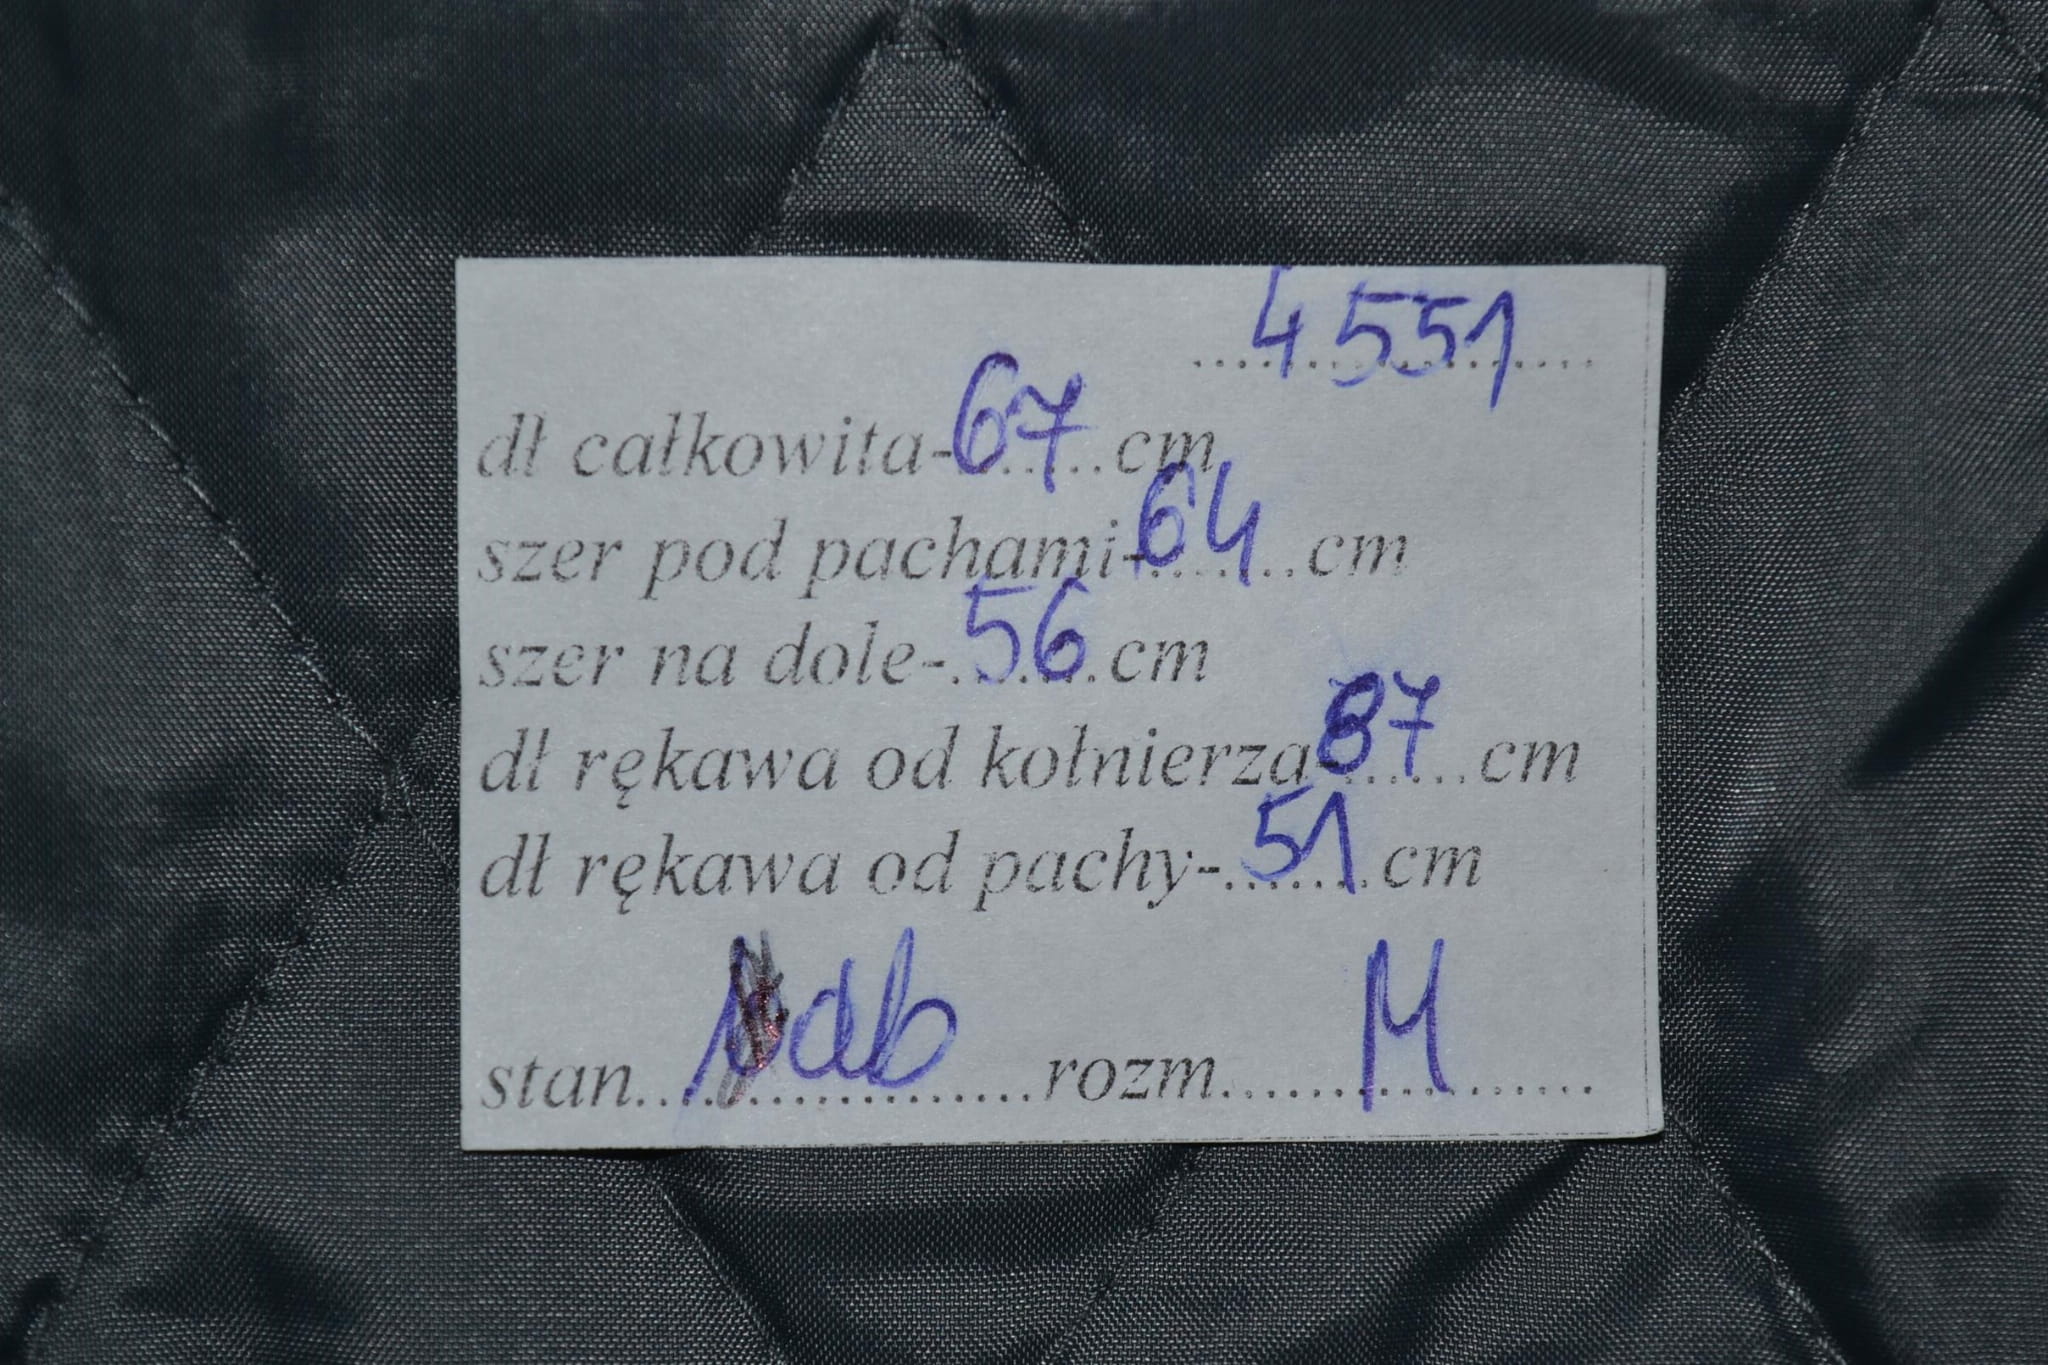 4551
dł całkowita-67 cm
szer pod pachami-64 cm
szer na dole-56 cm
dł rękawa od kołnierza-87 cm
dł rękawa od pachy-51 cm
stan db rozm M